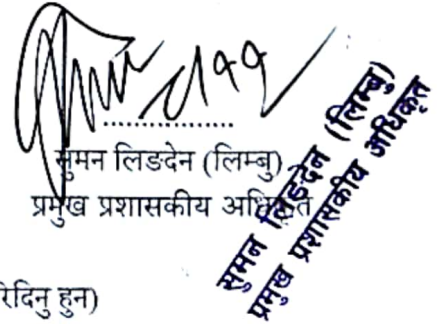 सुमन लिङदेन (लिम्बु)
प्रमुख प्रशासकीय अधिकृत
सुमन लिङदेन (लिम्बु)
प्रमुख प्रशासकीय अधिकृत
रिदिनु हुन)